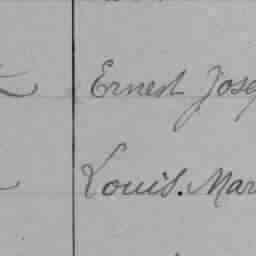 Ernest Jose
Louis. Mar